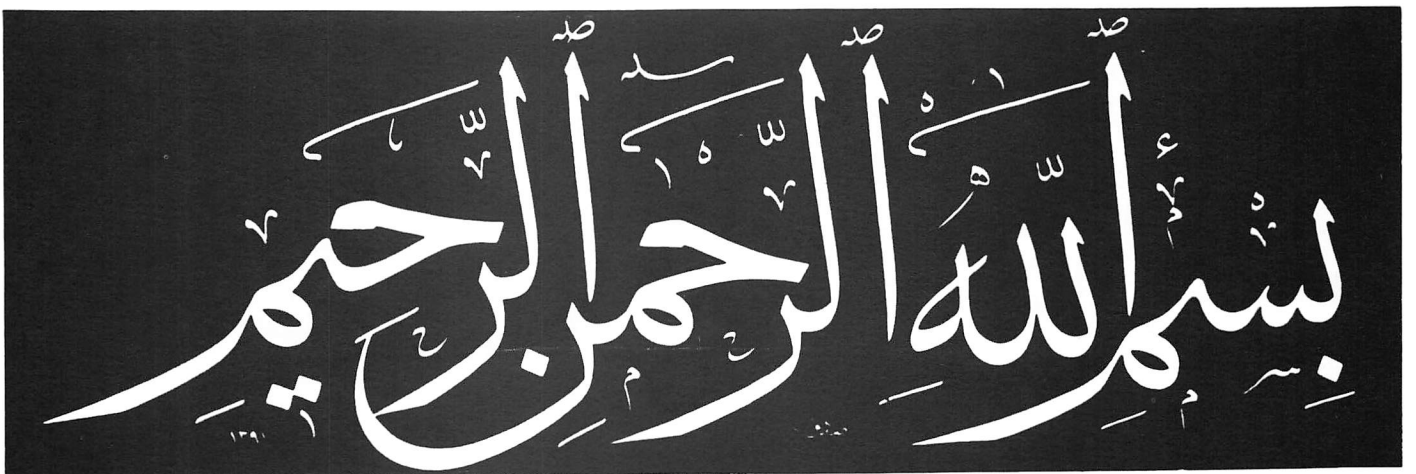 بِسْمِ ٱللَّهِ ٱلرَّحْمَٰنِ ٱلرَّحِيمِ
١٣٩٠